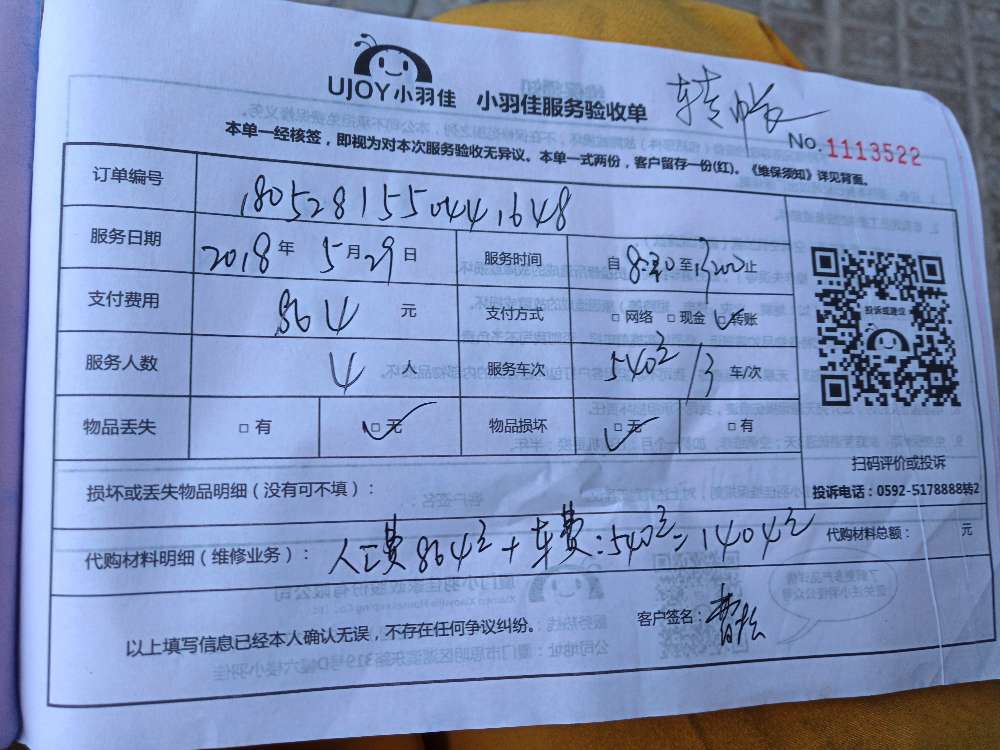 UJOY小羽佳 小羽佳服务验收单
转账
No.1113522
本单一经核签，即视为对本次服务验收无异议。本单一式两份，客户留存一份(红)。《维保须知》详见背面。
订单编号 1805281550441648
服务日期 2018年 5月29日 服务时间 自8:30至13:00止
支付费用 864 元 支付方式 □网络 □现金 ☑转账
服务人数 4 人 服务车次 540元/3 车/次
物品丢失 □有 ☑无 物品损坏 ☑无 □有
投诉或建议
扫码评价或投诉
投诉电话：0592-5178888转2
损坏或丢失物品明细（没有可不填）：
代购材料明细（维修业务）： 人工费864元+车费:540元=1404元 代购材料总额： 元
以上填写信息已经本人确认无误，不存在任何争议纠纷。 客户签名：